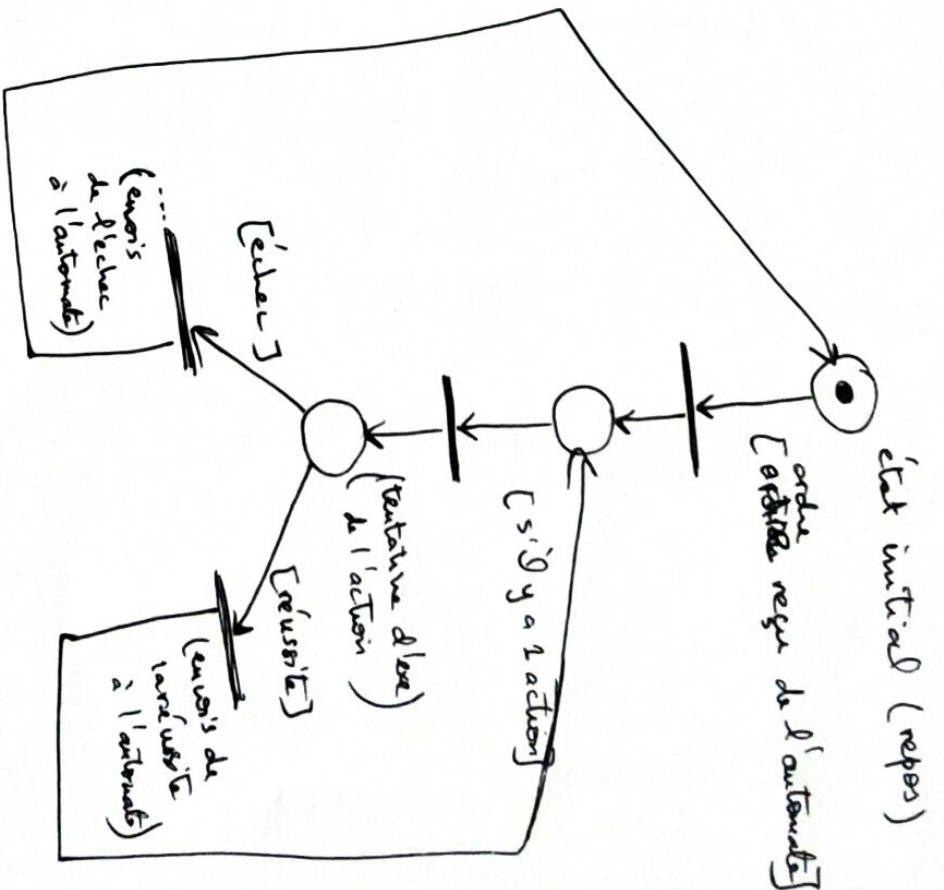 état initial (repos)
[ordre reçu de l'automate]
[s'il y a 1 action]
(tentative d'exe
de l'action)
[échec]
[réussite]
(envois
de l'échec
à l'automate)
(envois de
la réussite
à l'automate)